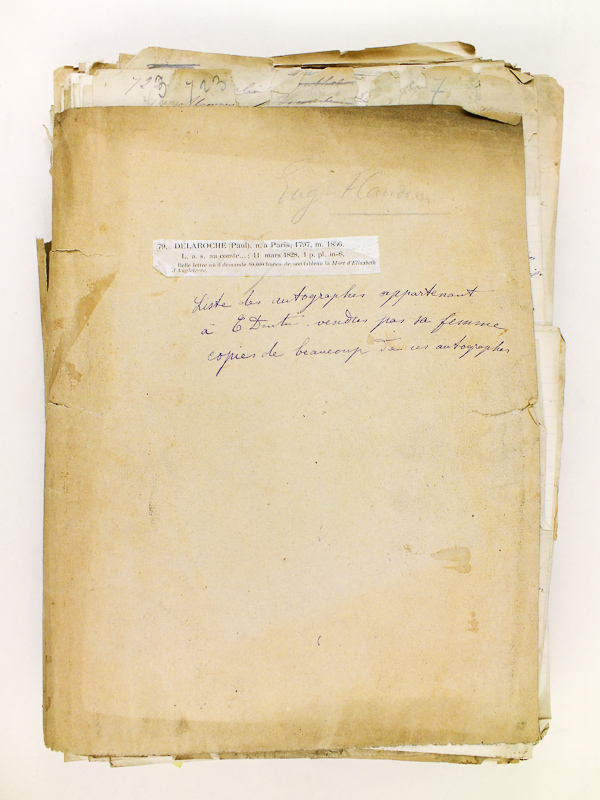 723 723
7
Eug
79. DELAROCHE (Paul), n. à Paris, 1797, m. 1856.
L. a. s. au comte... ; 11 mars 1828, 1 p. pl. in-8.
Belle lettre où il demande 10,000 francs de son tableau la Mort d'Elizabeth
d'Angleterre.
Liste des autographes appartenant
à E vendus par sa femme,
copies de beaucoup de ces autographes